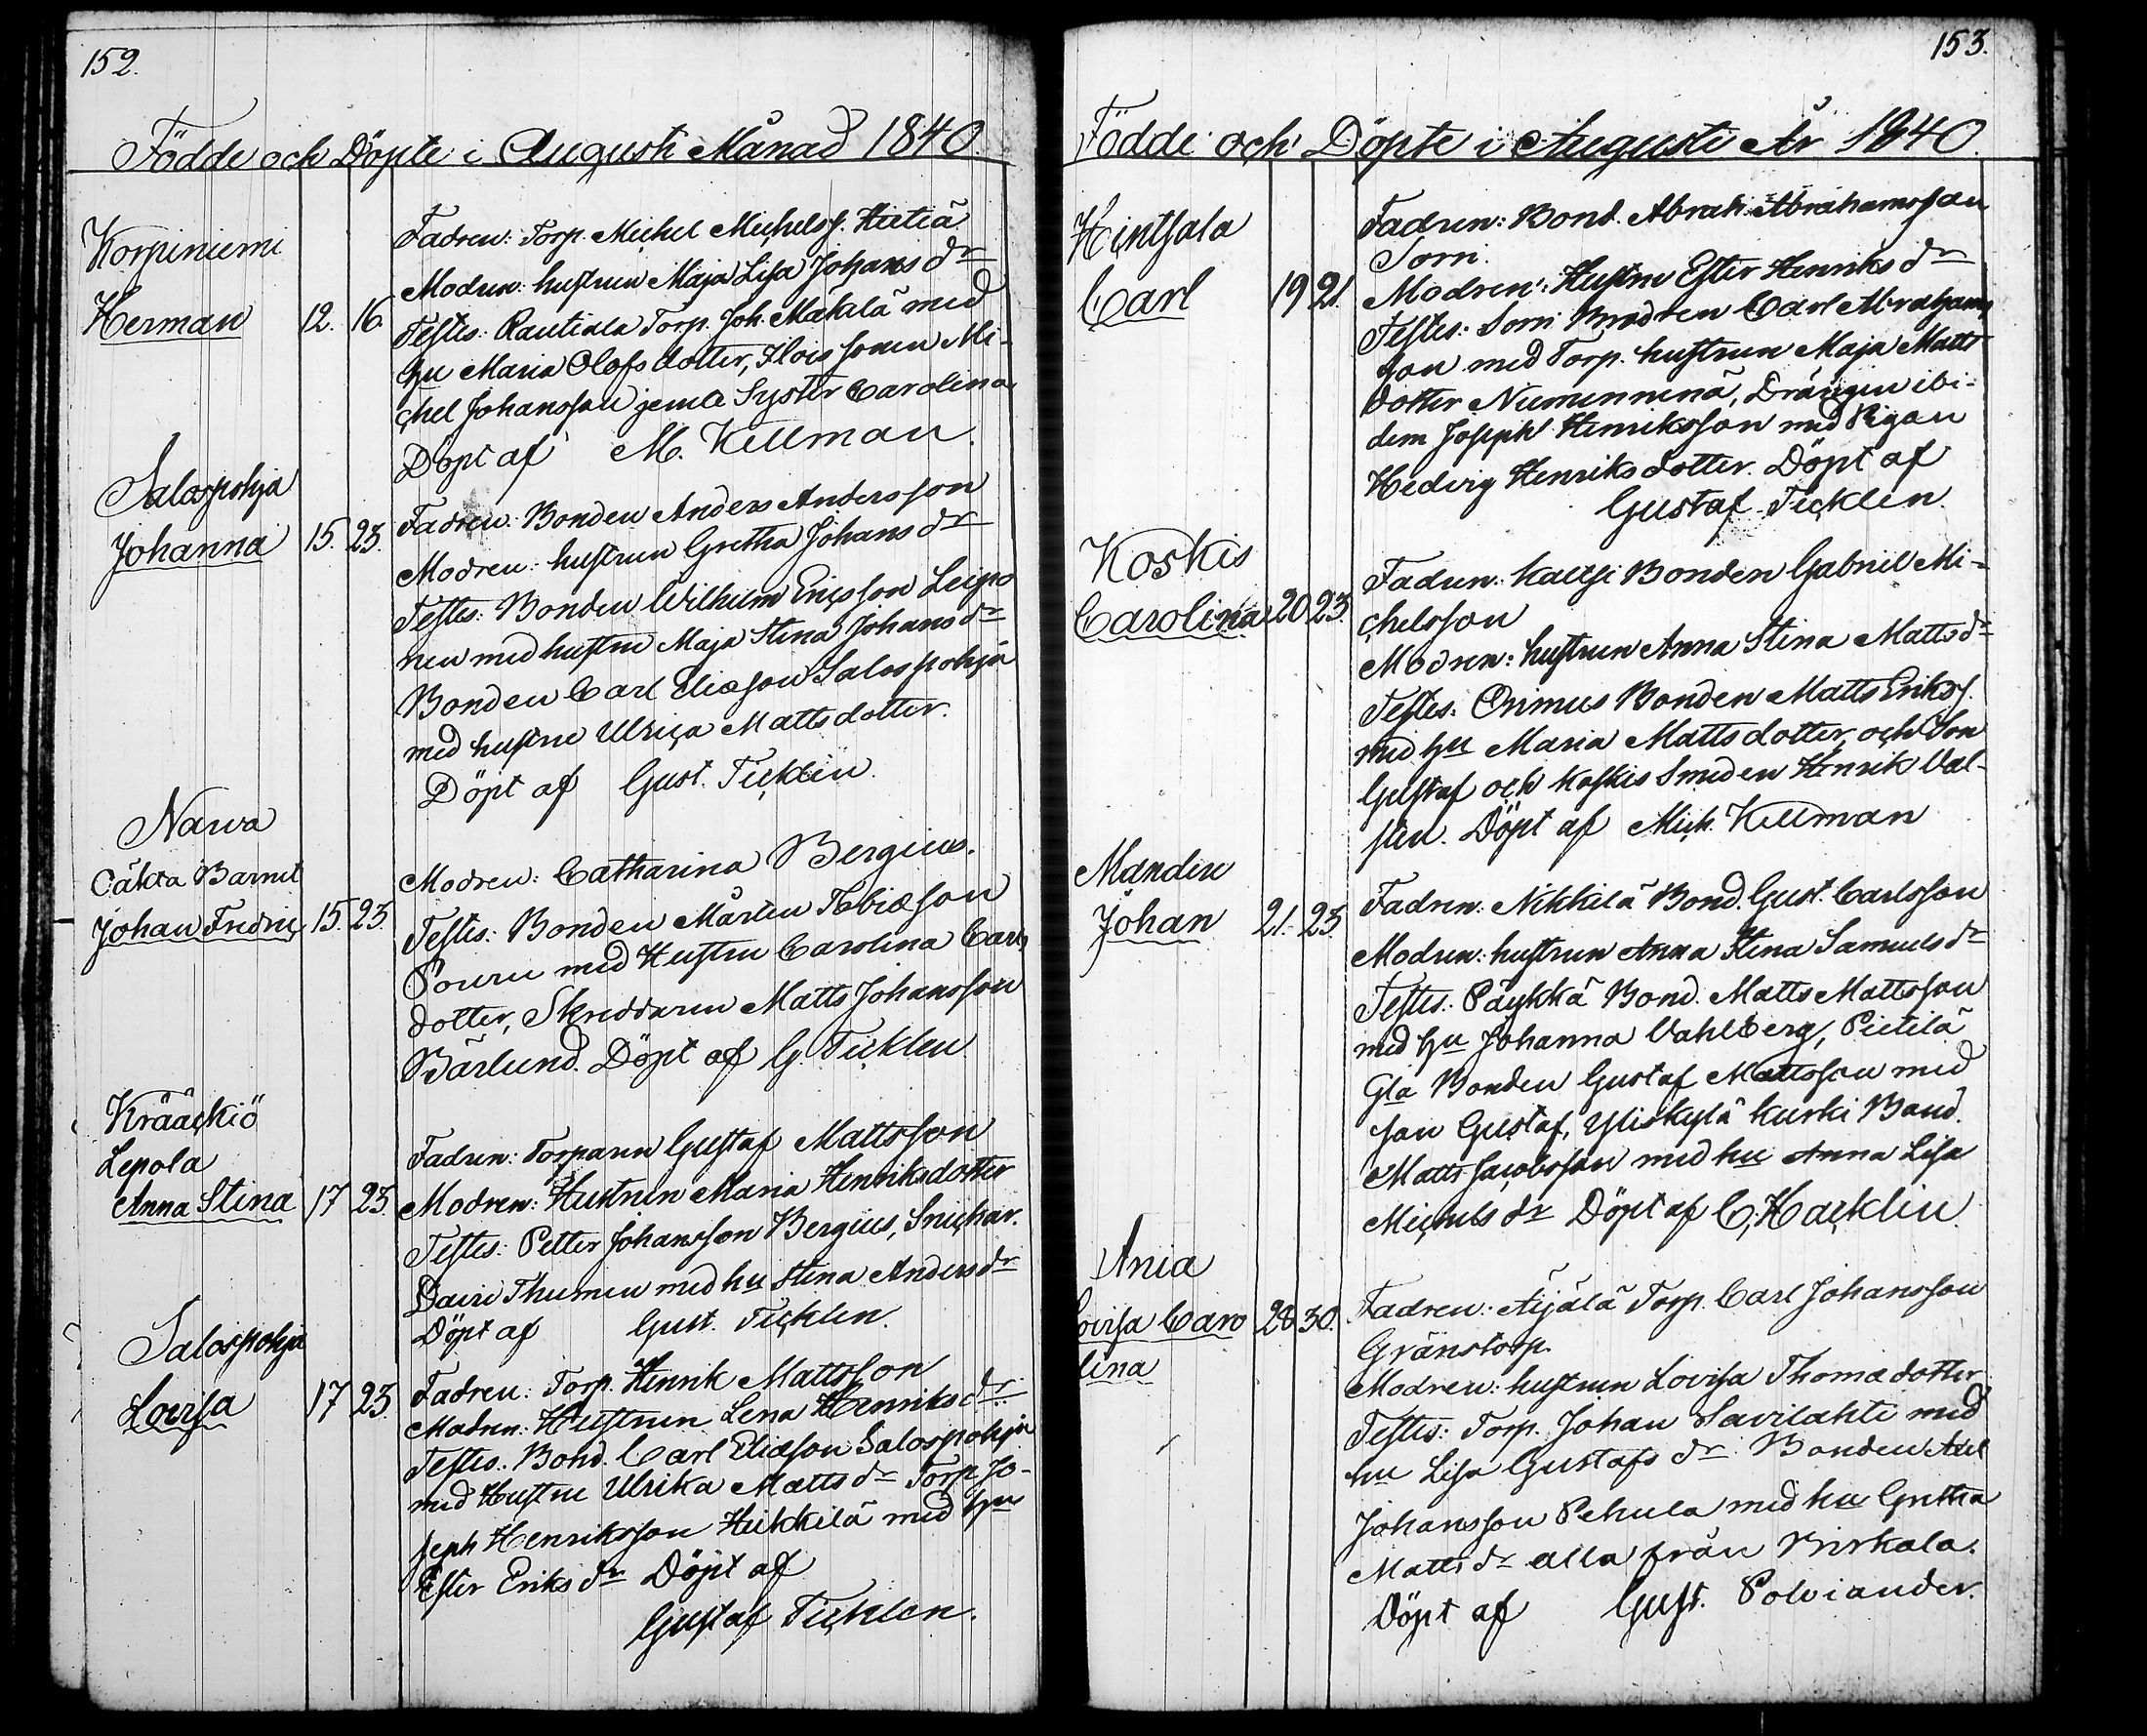 152.
Födde och Döpte i Augusti Månad 1840.
Korpiniemi
Herman 12. 16.
Fadren: Torp. Michel Michelss. Hietiä
Modren: hustrun Maja Lisa Johans dr
Testes: Rautiala Torp. Joh. Mäkilä med
hu Maria Olofs dotter, Flois sonen Mi-
chel Johansson jemte Syster Carolina
Döpt af M. Killman.
Salospohja
Johanna 15. 23.
Fadren: Bonden Anders Andersson
Modren: hustrun Gretha Johans dr
Testes: Bonden Wilhelm Ericsson Leipo
nen med hustru Maja Stina Johans dr
Bonden Carl Eliæson Salospohja
med hustru Ulrica Mattsdotter.
Döpt af Gust. Ticklén.
Narva
Oäkta Barnet
Johan Fredric 15. 23.
Modren: Catharina Bergius.
Testes: Bonden Mårten Tobiæson
Pouru med Hustru Carolina Carls
dotter, Skreddaren Matts Johansson
Bärlund. Döpt af G. Ticklen
Krääckiö
Lepola
Anna Stina 17 23.
Fadren: Torparen Gustaf Mattsson
Modren: Hustrun Maria Henriksdotter
Testes: Petter Johansson Bergius, Snickar.
David Thumen med hu Stina Anders dr
Döpt af Gust. Ticklen.
Salospohja
Lovisa 17 23.
Fadren: Torp. Henrik Mattsson
Modren: Hustrun Lena Henriks dr
Testes: Bond. Carl Eliæson Salospohja
med Hustru Ulrika Matts dr Torp. Jo-
seph Henriksson Heikkilä med hu
Ester Eriks dr Döpt af
Gustaf Ticklen.
153.
Födde och Döpte i Augusti År 1840.
Hintsala
Carl 19 21.
Fadren: Bond. Abrah. Abrahamsson
Sorri.
Modren: Hustru Ester Henriks dr
Testes: Sorri Brodren Carl Abrahams
son med Torp. hustrun Maja Matts
dotter Nieminnenä, Drängen ibi-
dem Joseph Henriksson med Pigan
Hedvig Henriksdotter. Döpt af
Gustaf Ticklen.
Koskis
Carolina 20 23.
Fadren: Kaltsi Bonden Gabriel Mi-
chelsson
Modren: hustrun Anna Stina Matts dr
Testes: Orimus Bonden Matts Erikss.
med hu Maria Mattsdotter, och Son
Gustaf och Koskis Smeden Henrik Val-
sten. Döpt af Mich. Killman
Manden
Johan 21. 23.
Fadren: Nikkilä Bond. Gust. Carlsson
Modren: hustrun Anna Stina Samuels dr
Testes: Päykkä Bond. Matts Mattsson
med hu Johanna Vahlberg, Pietilä
Gla Bonden Gustaf Mattsson med
son Gustaf, Yliskylä Kurki Bond.
Matts Jacobsson med hu Anna Lisa
Michels dr Döpt af C. Hacklin
Ania
Lovisa Caro 28. 30.
lina
Fadren: Äijälä Torp. Carl Johansson
Gränstorp.
Modren: hustrun Lovisa Thomædotter
Testes: Torp. Johan Savilahti med
hu Lisa Gustafs dr Bonden Axel
Johansson Pehula med hu Gretha
Matts dr alla från Birkala.
Döpt af Gust. Polviander.